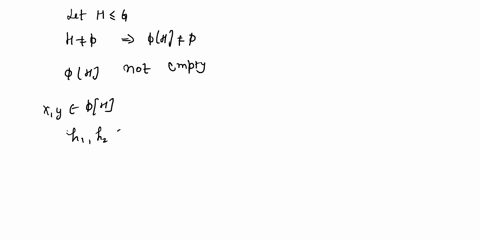 Let H ≤ G
H ≠ φ ⇒ φ[H] ≠ φ
φ[H] not empty
x, y ∈ φ[H]
h₁, h₂